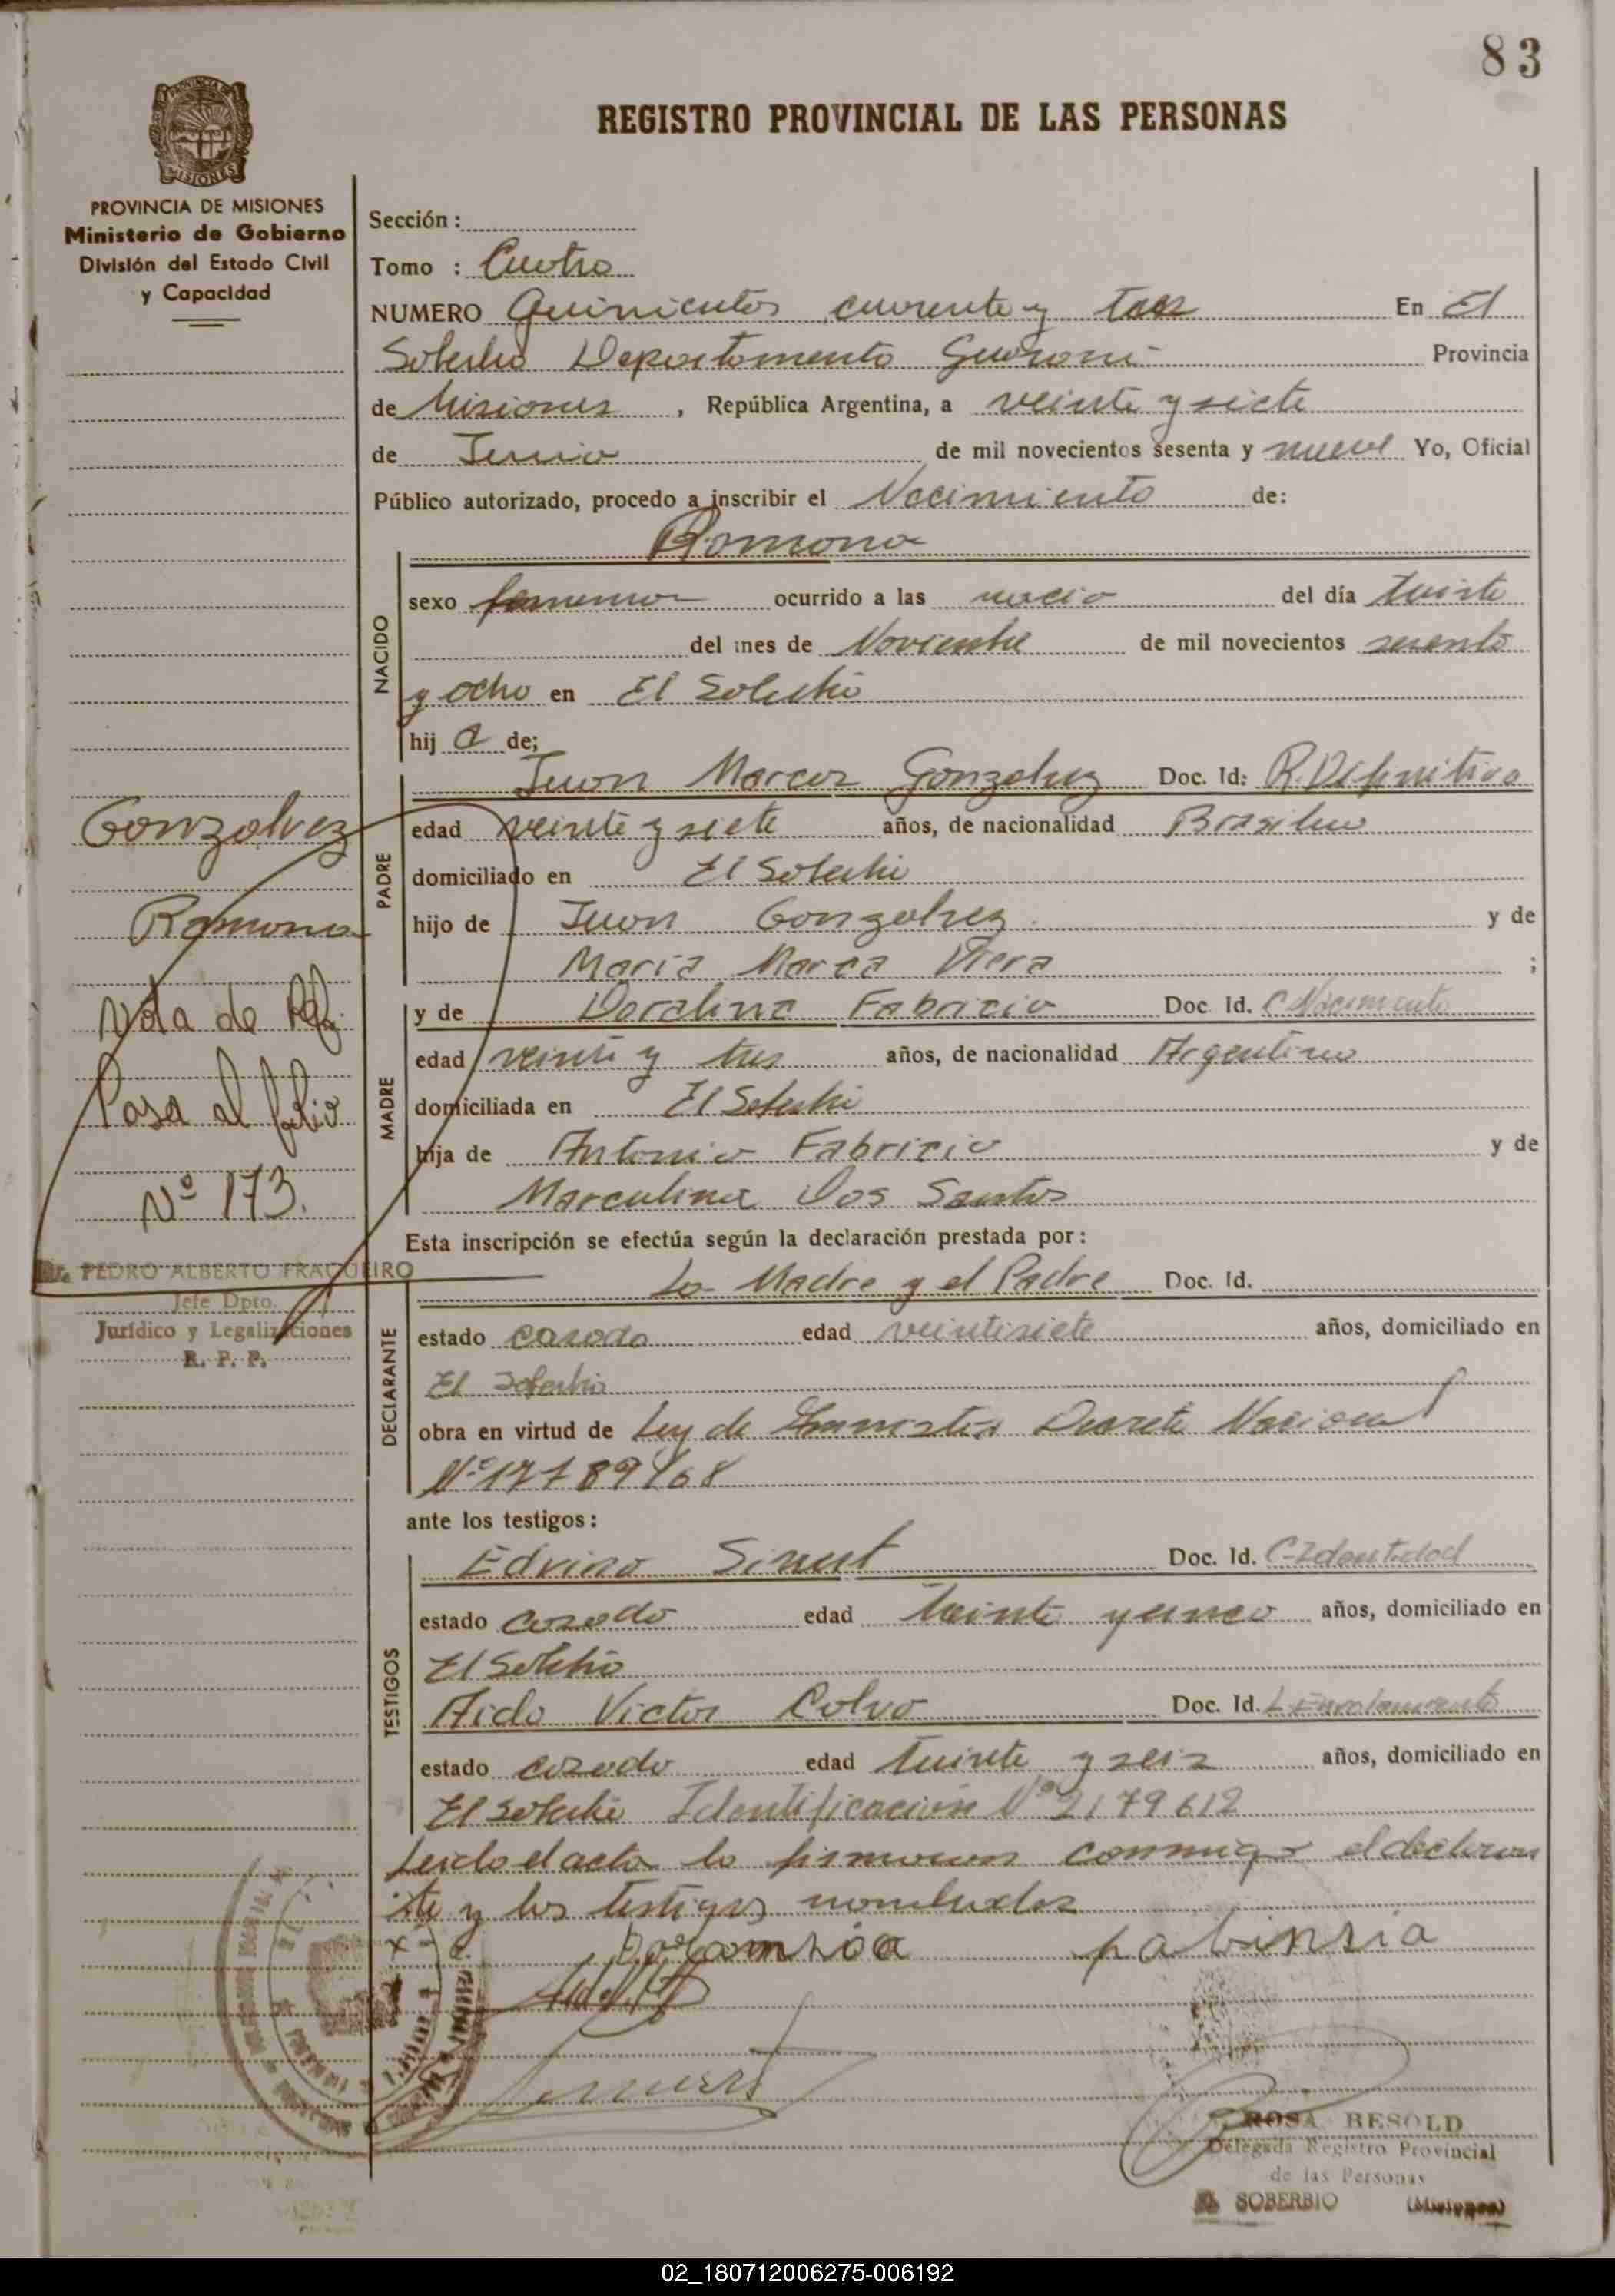 83
REGISTRO PROVINCIAL DE LAS PERSONAS
PROVINCIA DE MISIONES
Ministerio de Gobierno
División del Estado Civil
y Capacidad
Sección :
Tomo : Cuatro
NUMERO Quinientos cuarenta y tres En El
Soberbio Departamento Guarani Provincia
de Misiones , República Argentina, a veinte y siete
de Junio de mil novecientos sesenta y nueve Yo, Oficial
Público autorizado, procedo a inscribir el Nacimiento de:
Ramona
NACIDO
sexo femenino ocurrido a las nacio del día treinta
del mes de Noviembre de mil novecientos sesenta
y ocho en El Soberbio
hij a de;
Juan Marcos Gonzalvez Doc. Id: R. Definitiva
PADRE
edad veinte y siete años, de nacionalidad Brasilero
domiciliado en El Soberbio
hijo de Juan Gonzalvez y de
Maria Marca Viera ;
y de Doralina Fabricio Doc Id. C Nacimiento
MADRE
edad veinte y tres años, de nacionalidad Argentina
domiciliada en El Soberbio
hija de Antonio Fabricio y de
Marculina Dos Santos
Gonzalvez
Ramona
Nota de Ref.
Pasa al folio
Nº 173.
Dr. PEDRO ALBERTO FRAQUEIRO
Jefe Dpto.
Jurídico y Legalizaciones
R. P. P.
Esta inscripción se efectúa según la declaración prestada por :
La Madre y el Padre Doc. Id.
DECLARANTE
estado casado edad veintisiete años, domiciliado en
El Soberbio
obra en virtud de Ley de Decreto Nacional
Nº 17789/68
ante los testigos :
TESTIGOS
Edvino Sinest Doc. Id. C-Identidad
estado casado edad treinta y cinco años, domiciliado en
El Soberbio
Aido Victor Colvo Doc. Id. L Enrolamiento
estado casado edad treinta y seis años, domiciliado en
El Soberbio Identificación Nº 2179612
Leido el acta lo firmaron conmigo el declaran
te y los testigos nombrados
ROSA BESOLD
Delegada Registro Provincial
de las Personas
EL SOBERBIO (Misiones)
02_180712006275-006192